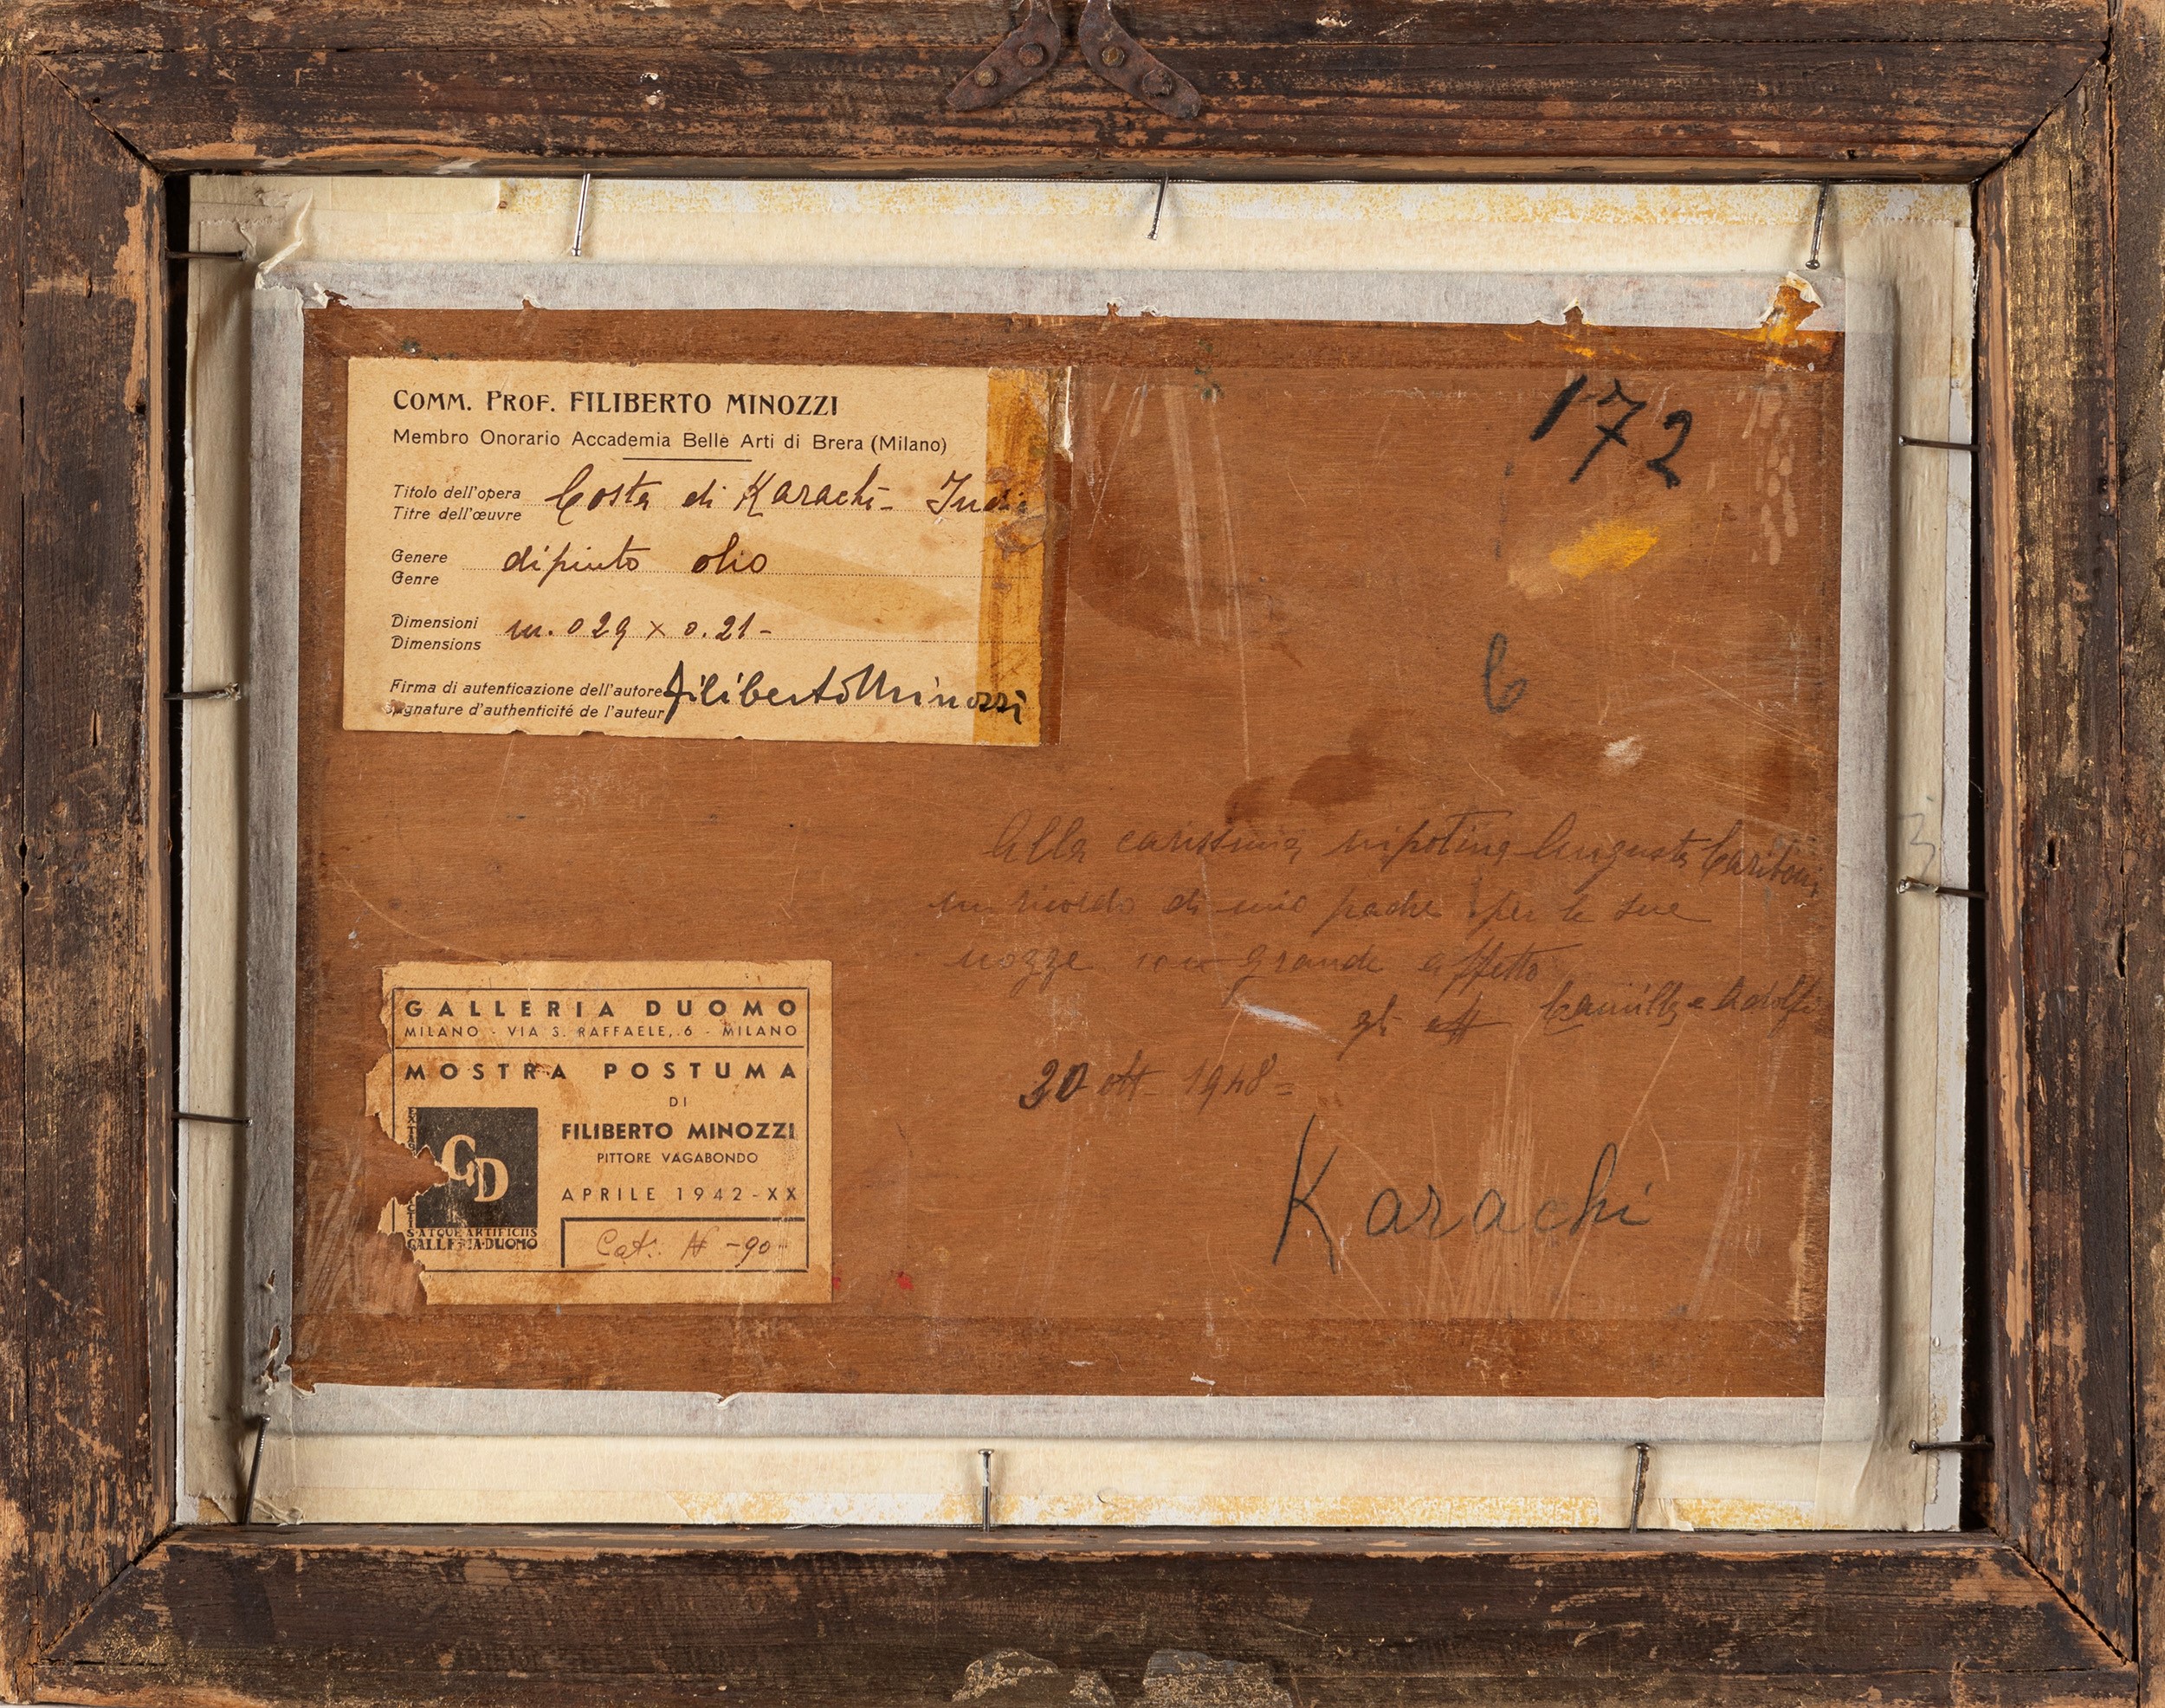 COMM. PROF. FILIBERTO MINOZZI
Membro Onorario Accademia Belle Arti di Brera (Milano)
Titolo dell'opera Costa di Karachi - Indi
Titre dell'œuvre
Genere dipinto olio
Genre
Dimensioni m. 0 29 × 0.21 -
Dimensions
Firma di autenticazione dell'autore Filiberto Minozzi
Signature d'authenticité de l'auteur
172
6
3
Alla carissima nipotina Augusta Cariboni
un ricordo di mio padre per le sue
nozze con grande affetto
gli Camilla e Adolfo
20 ott - 1948 =
Karachi
GALLERIA DUOMO
MILANO - VIA S. RAFFAELE, 6 - MILANO
MOSTRA POSTUMA
DI
FILIBERTO MINOZZI
PITTORE VAGABONDO
APRILE 1942-XX
GD
S·ATQUE ARTIFICIIS
GALLERIA·DUOMO
Cat. N - 90 -